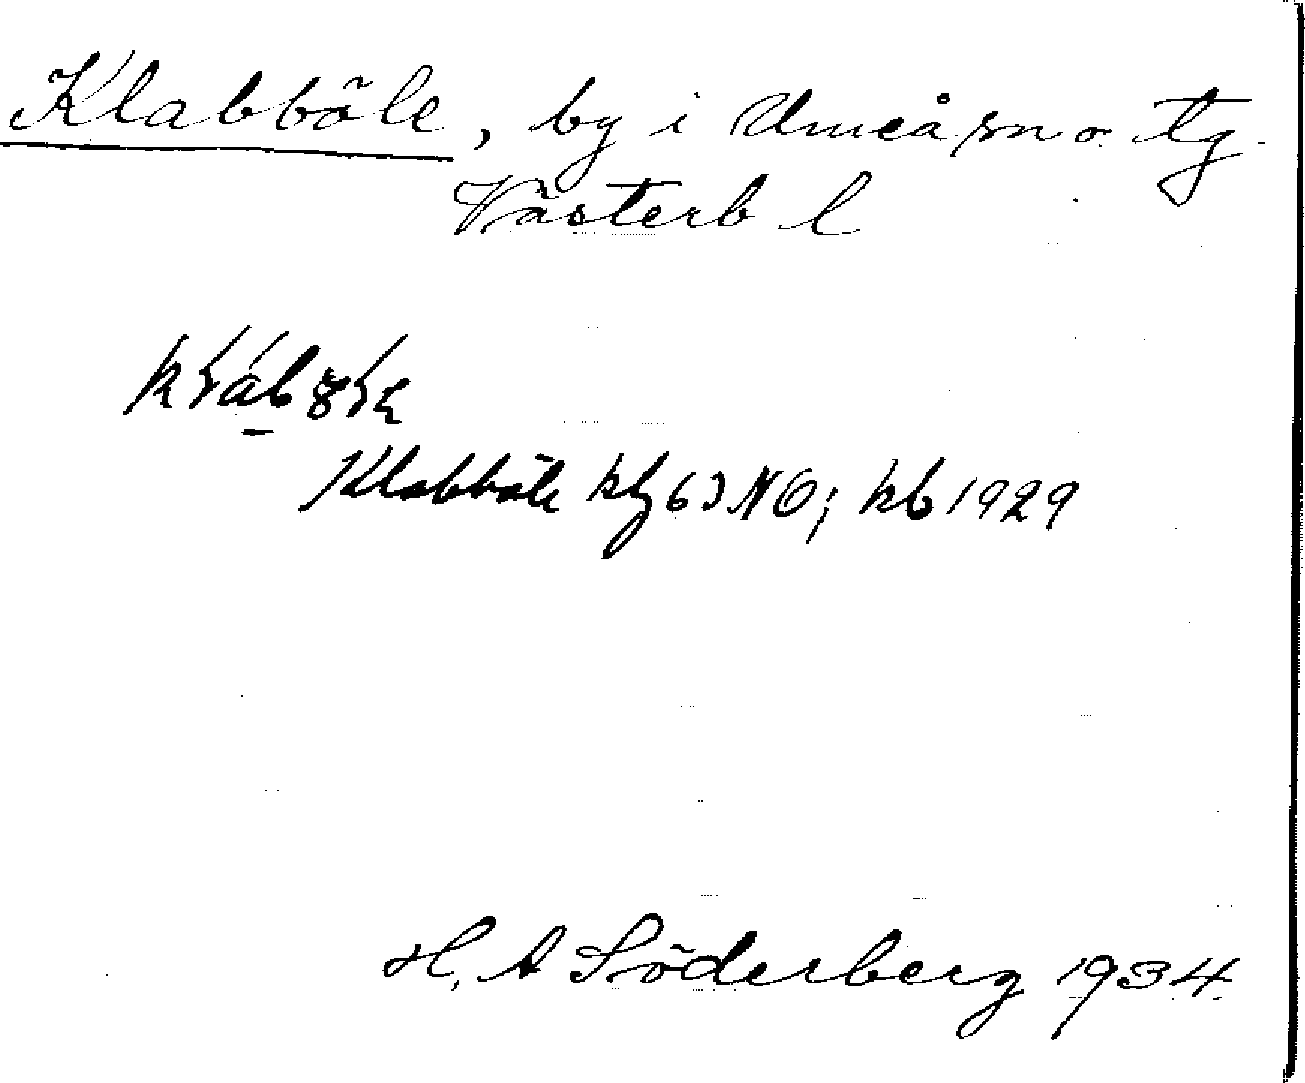 Klabböle, by i Umeå sn o. tg.
Västerb l
Klabböle kbl 63 NO; kb 1929
H. A Söderberg 1934